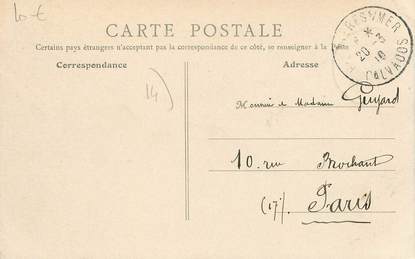 10 €
CARTE POSTALE
Certains pays étrangers n'acceptant pas la correspondance de ce côté, se renseigner à la Poste
Correspondance
Adresse
14)
CALVADOS
Monsieur & Madame Guyard
10. rue Brochant
(17)
Paris